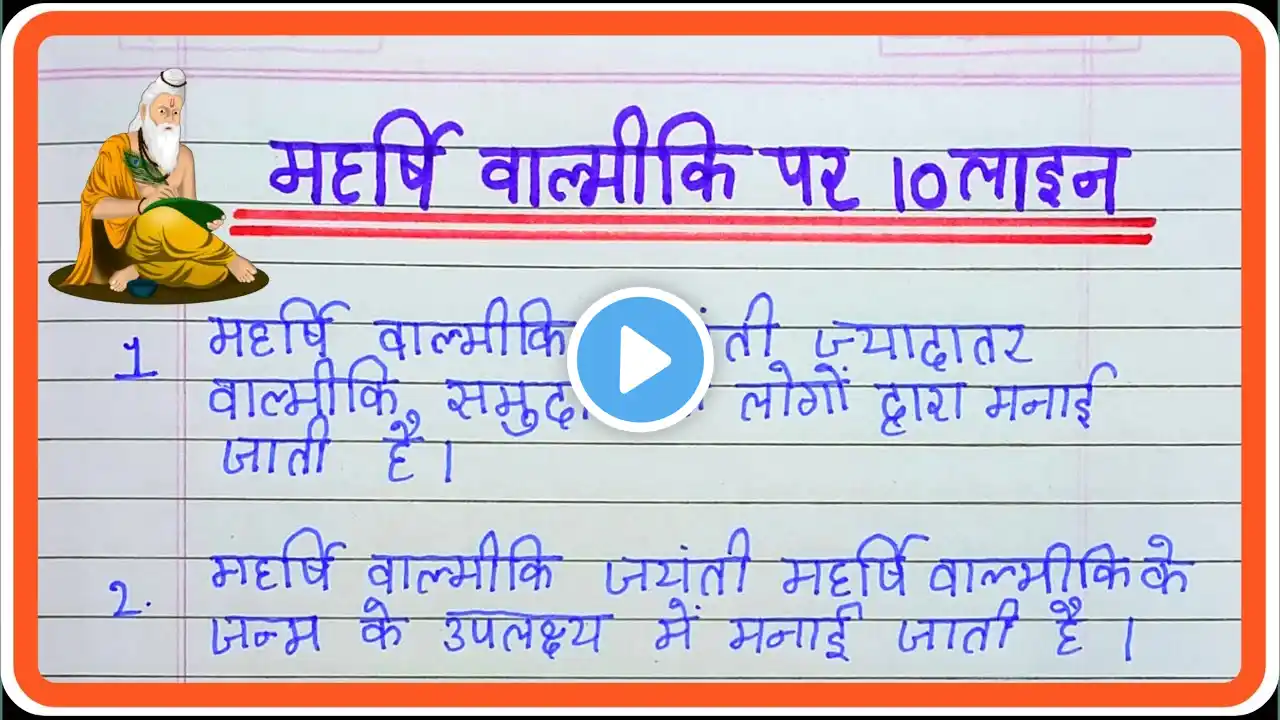 महर्षि वाल्मीकि पर 10 लाइन
1 महर्षि वाल्मीकि ज्यादातर
वाल्मीकि लोगों द्वारा मनाई
जाती है।
2. महर्षि वाल्मीकि जयंती महर्षि वाल्मीकि के
जन्म के उपलक्ष्य में मनाई जाती है।